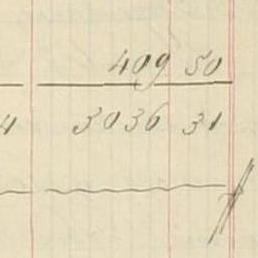 409 50
4 3036 31